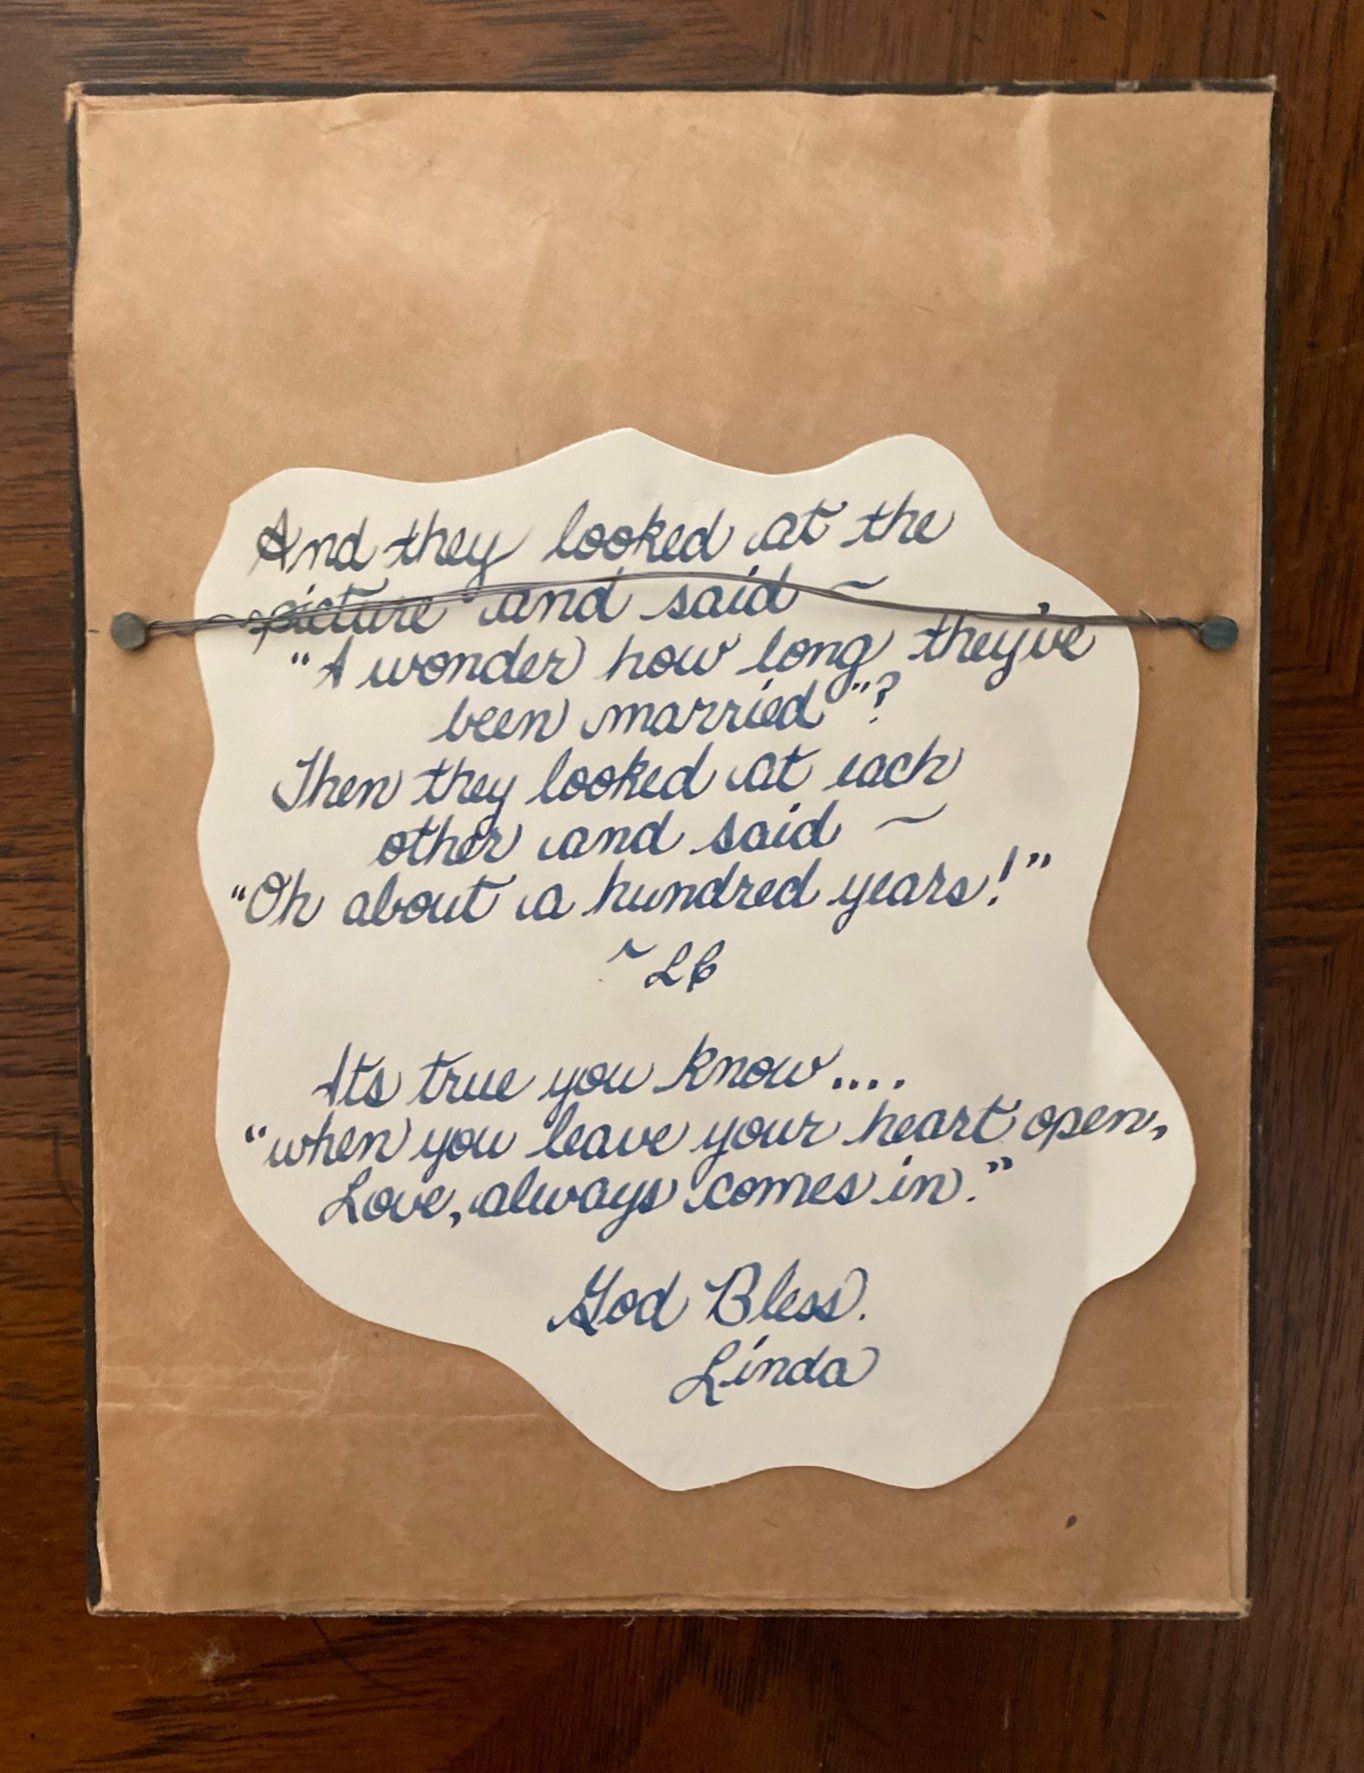 And they looked at the
picture and said ~
"I wonder how long they've
been married"?
Then they looked at each
other and said ~
"Oh about a hundred years!"
~LC
Its true you know....
"when you leave your heart open,
Love, always comes in."
God Bless.
Linda